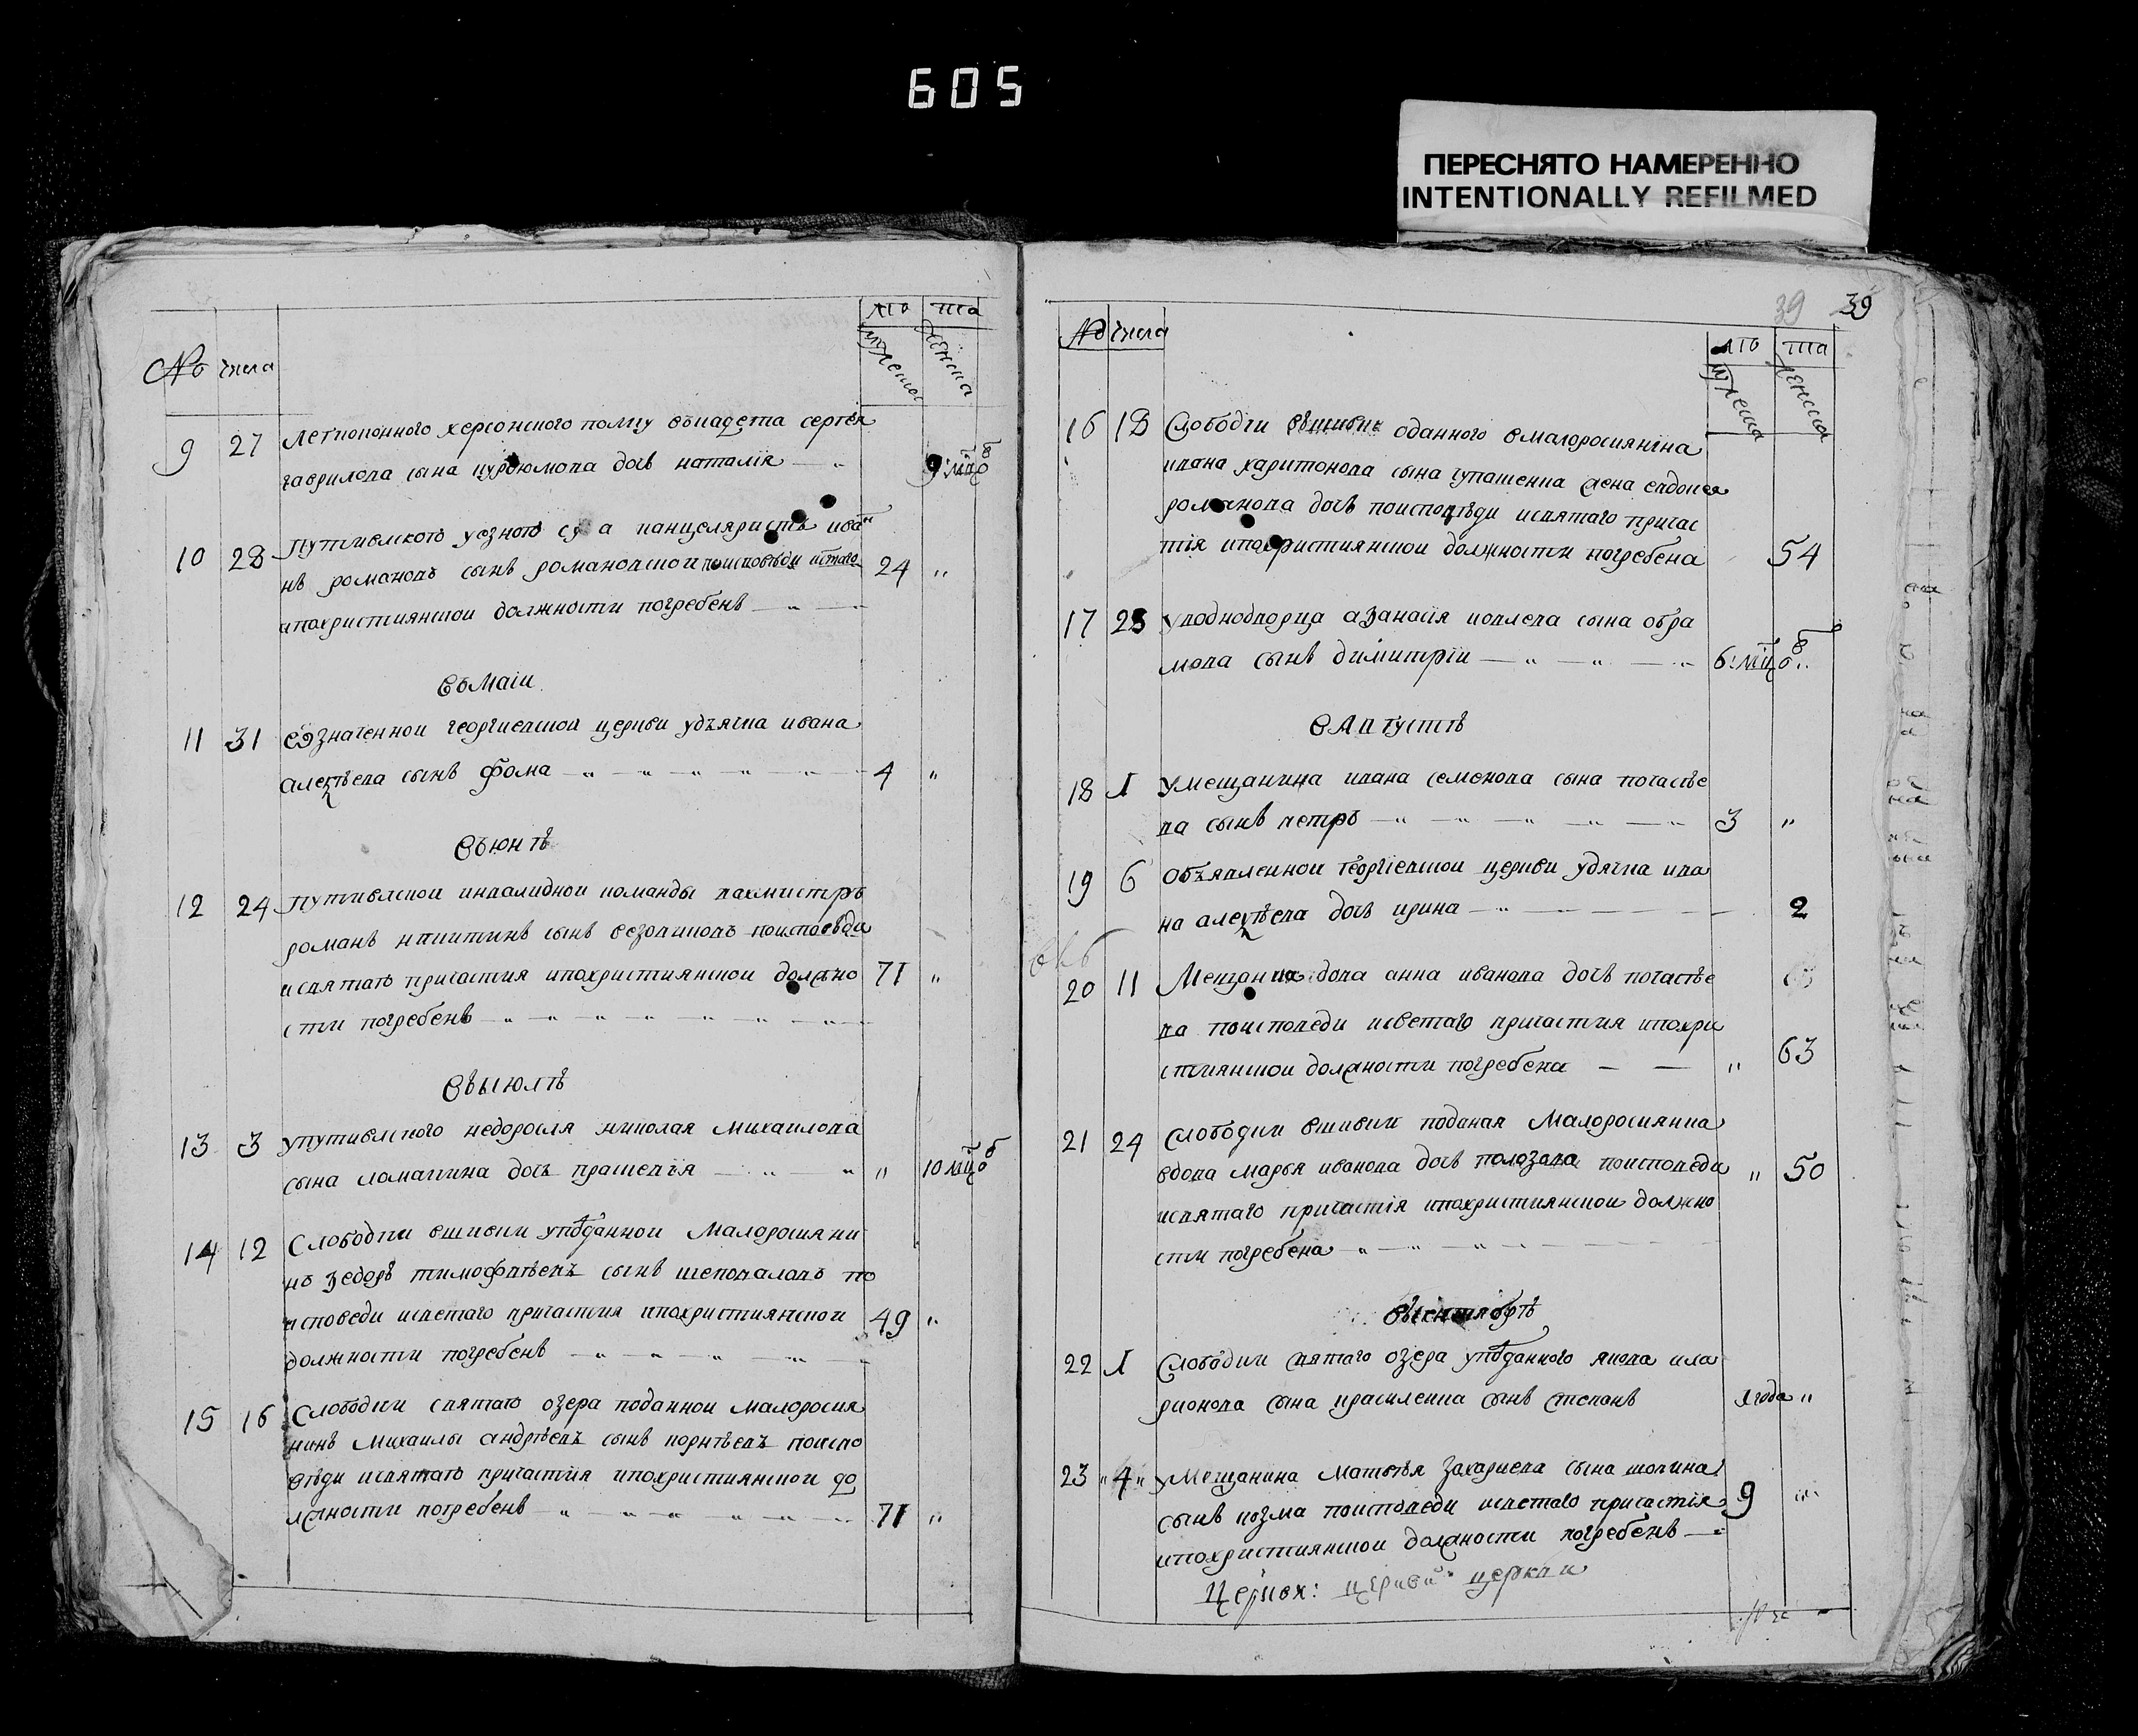 605
ПЕРЕСНЯТО НАМЕРЕННО
INTENTIONALLY REFILMED
№ числа
лѣта
мужеска женска
9 27 Легкоконного херсонского полку вънадета сергѣя
гаврилова сына дочь наталія 9: мцов
10 28 Путивлского уезного суда канцеляристъ ива
нъ романовъ сынъ романовскои поисповѣди истаго 24 „
ипохристиянскои должности погребенъ
въ маіи
11 31 Означеннои георгиевскои церкви удьячка ивана
алексѣева сынъ фома 4 „
въ юнѣ
12 24 путивлскои инвалиднои команды вахмистръ
романъ никитинъ сынъ поисповѣди
исвятаго причастия ипохристиянскои должно 71 „
сти погребенъ
въ июлѣ
13 3 упутивлского недоросля николая михаилова
сына ломакина дочь прасковѣя „ 10 мцов
14 12 Слободки вшивки уподданнои Малоросияни
нъ ѳедоръ тимофѣевъ сынъ шеповаловъ по
исповеди исветаго причастия ипохристиянскои 49 „
должности погребенъ
15 16 Слободки святаго озера поданнои малоросия
нинъ михаилы андрѣевъ сынъ корнѣевъ поиспо
вѣди исвятаго причастия ипохристиянскои до
лжности погребенъ 71 „
39 39
№ числа
лѣта
мужеска женска
16 18 Слободки вшивки оданного малоросиянина
ивана харитонова сына жена евдокея
романова дочь поисповѣди исвятаго причас
тія ипохристиянскои должности погребена 54
17 23 уподнодворца аѳанасія иовлева сына обра
мова сынъ димитріи 6: мцов „
в Августѣ
18 1 умещанина ивана семенова сына почасѣе
ва сынъ петръ 3 „
19 6 объявленнои георгіевскои церкви удячка ива
на алексѣева дочь ирина 2
20 11 Мещанка вдова анна иванова дочь почасѣе
ва поисповеди исветаго причастия ипохри
стиянскои должности погребена „ 63
21 24 слободки вшивки поданая Малоросиянка
вдова марья иванова дочь полозова поисповеди „ 50
исвятаго причастія ипохристиянскои должно
сти погребена
всентябрѣ
22 1 Слободки святаго озера уподданного якова ила
рионова сына красиленка сынъ степанъ 1 года „
23 „4„ умещанина матвѣя захариева сына шокина
сынъ козма поисповеди исветаго причастія 9 „
ипохристиянскои должности погребенъ
церков: церкви церкви